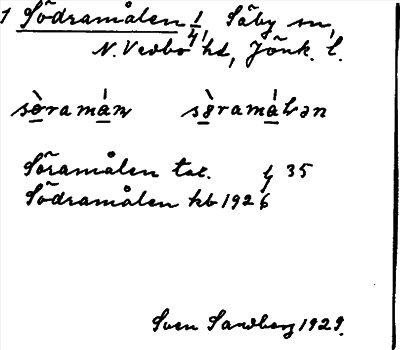 1 Södramålen 1/4, Säby sn,
N. Vedbo hd, Jönk. l.
sòramån sòramålən
Söramålen tal. 35
Södramålen kb 1926
Sven Sandberg 1929.